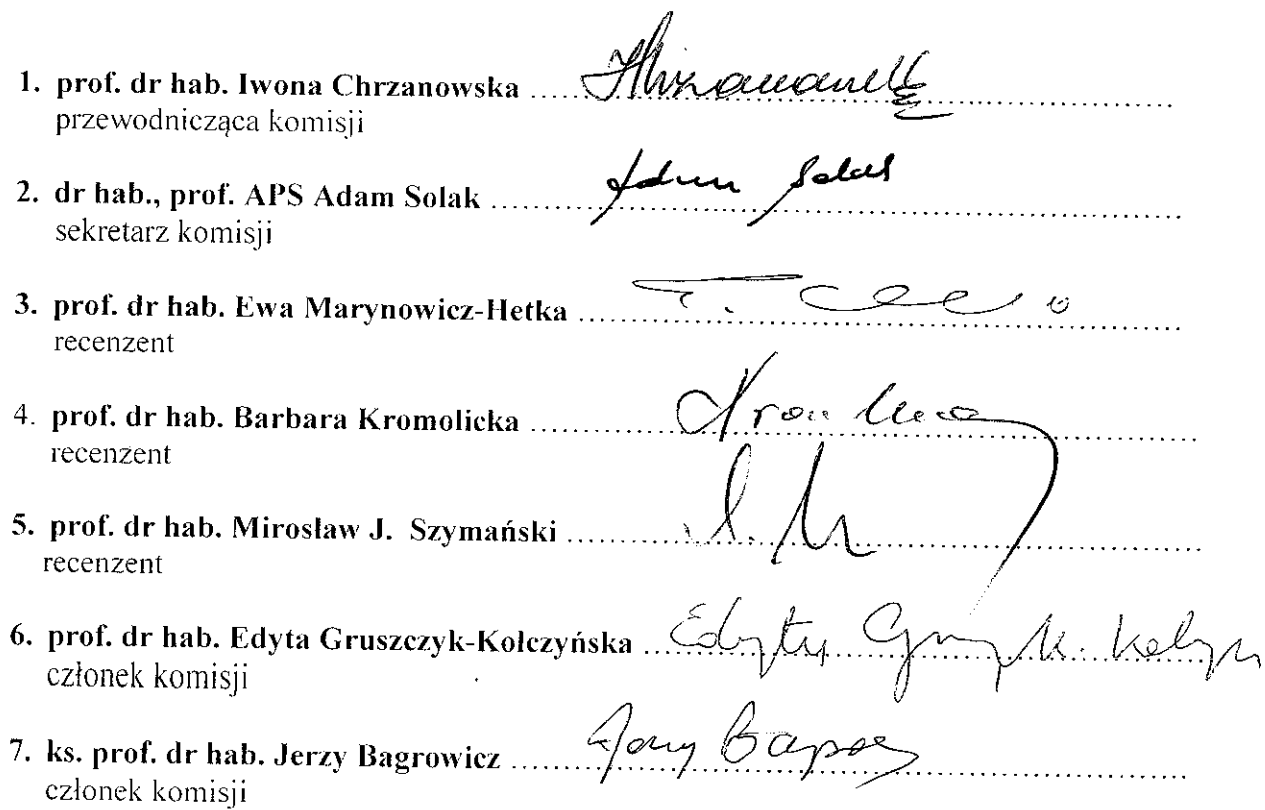 1. prof. dr hab. Iwona Chrzanowska
przewodnicząca komisji
2. dr hab., prof. APS Adam Solak Adam Solak
sekretarz komisji
3. prof. dr hab. Ewa Marynowicz-Hetka
recenzent
4. prof. dr hab. Barbara Kromolicka
recenzent
5. prof. dr hab. Mirosław J. Szymański
recenzent
6. prof. dr hab. Edyta Gruszczyk-Kolczyńska Edyta
członek komisji
7. ks. prof. dr hab. Jerzy Bagrowicz Jerzy
członek komisji